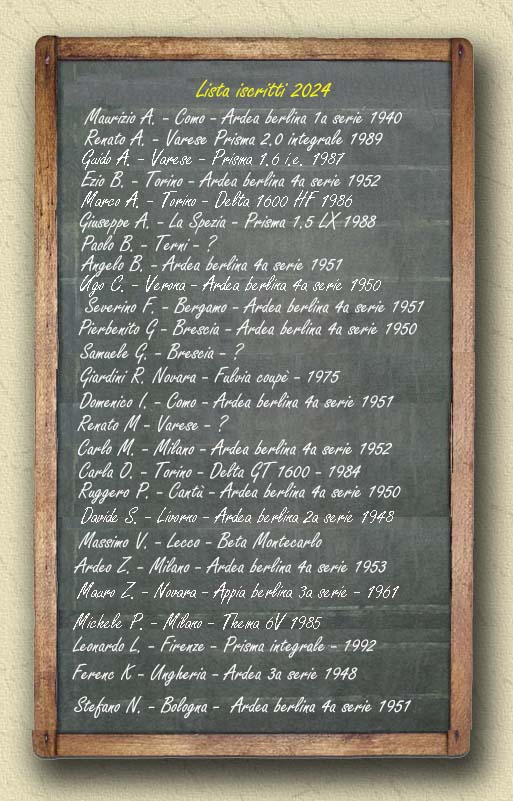 Lista iscritti 2024
Maurizio A. - Como - Ardea berlina 1a serie 1940
Renato A. - Varese Prisma 2.0 integrale 1989
Guido A. - Varese - Prisma 1.6 i.e. 1987
Ezio B. - Torino - Ardea berlina 4a serie 1952
Marco A. - Torino - Delta 1600 HF 1986
Giuseppe A. - La Spezia - Prisma 1.5 LX 1988
Paolo B. - Terni - ?
Angelo B. - Ardea berlina 4a serie 1951
Ugo C. - Verona - Ardea berlina 4a serie 1950
Severino F. - Bergamo - Ardea berlina 4a serie 1951
Pierbenito G - Brescia - Ardea berlina 4a serie 1950
Samuele G. - Brescia - ?
Giardini R. Novara - Fulvia coupè - 1975
Domenico I. - Como - Ardea berlina 4a serie 1951
Renato M - Varese - ?
Carlo M. - Milano - Ardea berlina 4a serie 1952
Carla O. - Torino - Delta GT 1600 - 1984
Ruggero P. - Cantù - Ardea berlina 4a serie 1950
Davide S. - Livorno - Ardea berlina 2a serie 1948
Massimo V. - Lecco - Beta Montecarlo
Ardeo Z. - Milano - Ardea berlina 4a serie 1953
Mauro Z. - Novara - Appia berlina 3a serie - 1961
Michele P. - Milano - Thema 6V 1985
Leonardo L. - Firenze - Prisma integrale - 1992
Ferenc K - Ungheria - Ardea 3a serie 1948
Stefano N. - Bologna - Ardea berlina 4a serie 1951